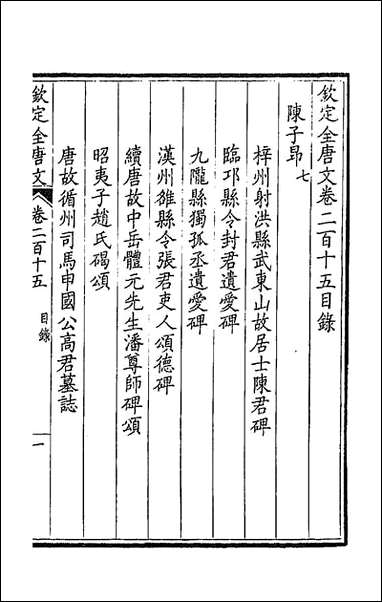 欽定全唐文卷二百十五目錄
陳子昂七
梓州射洪縣武東山故居士陳君碑
臨邛縣令封君遺愛碑
九隴縣獨孤丞遺愛碑
漢州雒縣令張君吏人頌德碑
續唐故中岳體元先生潘尊師碑頌
昭夷子趙氏碣頌
唐故循州司馬申國公高君墓誌
欽定全唐文 卷二百十五 目錄 一